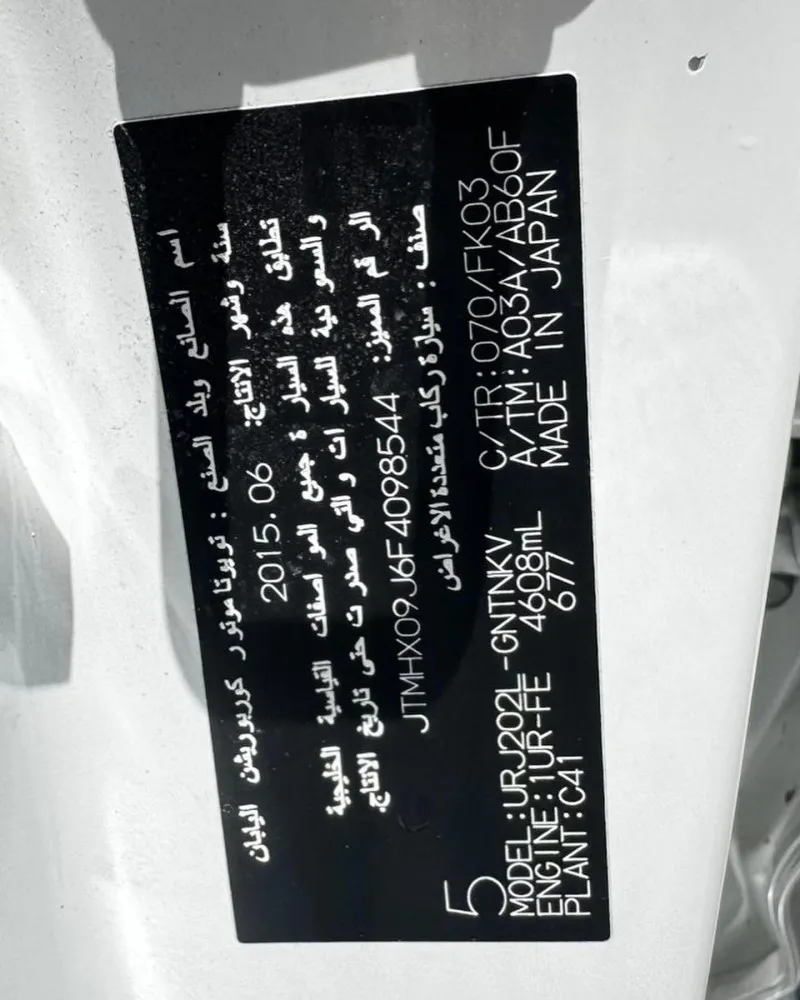 اسم الصانع وبلد الصنع : تويوتا موتور كوربوريشن اليابان
سنة وشهر الانتاج: 2015.06
تطابق هذه السيارة جميع المواصفات القياسية الخليجية
و السعودية للسيارات و التي صدرت حتى تاريخ الانتاج.
الرقم المميز: JTMHX09J6F4098544
صنف : سيارة ركاب متعددة الاغراض
5
MODEL:URJ202L-GNTNKV C/TR:070/FK03
ENGINE:1UR-FE 4608mL A/TM:A03A/AB60F
PLANT:C41 677 MADE IN JAPAN